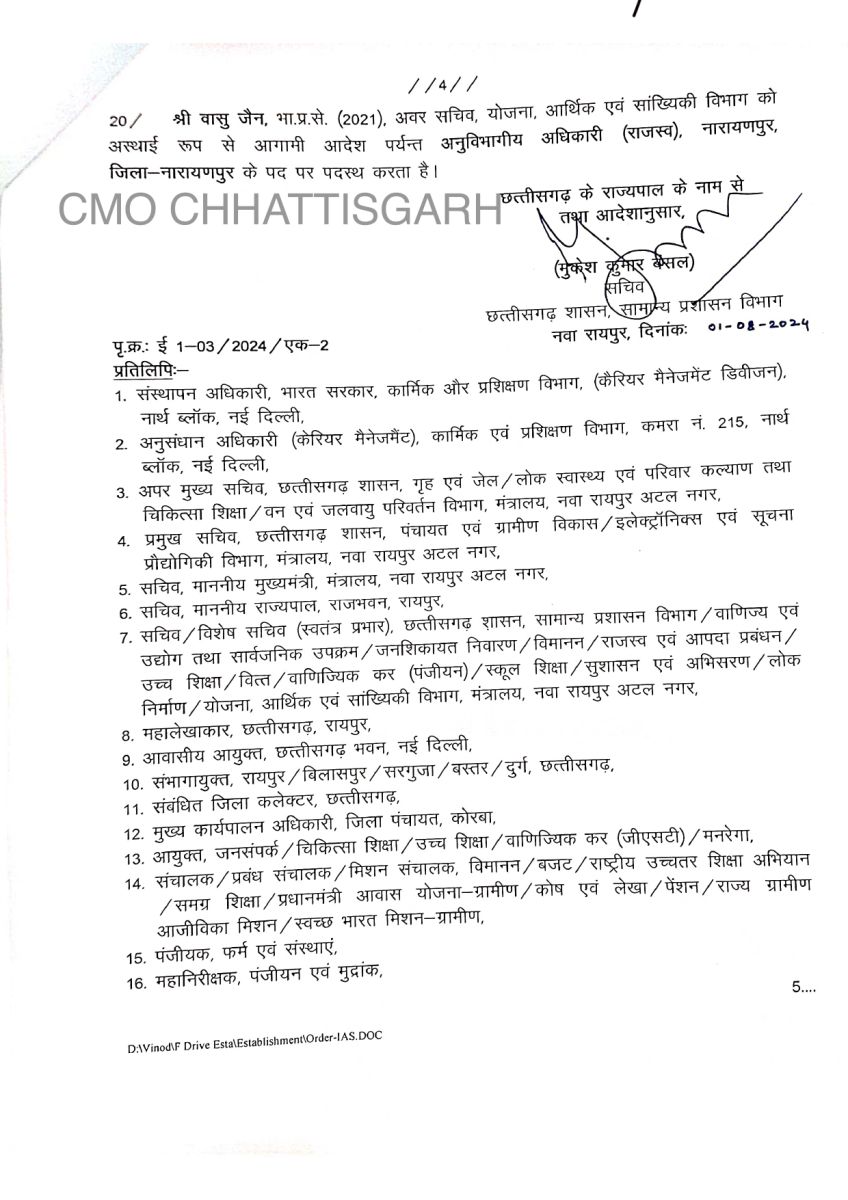 //4//
20/ श्री वासु जैन, भा.प्र.से. (2021), अवर सचिव, योजना, आर्थिक एवं सांख्यिकी विभाग को
अस्थाई रूप से आगामी आदेश पर्यन्त अनुविभागीय अधिकारी (राजस्व), नारायणपुर,
जिला–नारायणपुर के पद पर पदस्थ करता है।
CMO CHHATTISGARH
छत्तीसगढ़ के राज्यपाल के नाम से
तथा आदेशानुसार,
(मुकेश कुमार बंसल)
सचिव
छत्तीसगढ़ शासन, सामान्य प्रशासन विभाग
नवा रायपुर, दिनांकः 01-08-2024
पृ.क्र.: ई 1–03/2024/एक–2
प्रतिलिपिः–
1. संस्थापन अधिकारी, भारत सरकार, कार्मिक और प्रशिक्षण विभाग, (कैरियर मैनेजमेंट डिवीजन),
नार्थ ब्लॉक, नई दिल्ली,
2. अनुसंधान अधिकारी (केरियर मैनेजमैंट), कार्मिक एवं प्रशिक्षण विभाग, कमरा नं. 215, नार्थ
ब्लॉक, नई दिल्ली,
3. अपर मुख्य सचिव, छत्तीसगढ़ शासन, गृह एवं जेल/लोक स्वास्थ्य एवं परिवार कल्याण तथा
चिकित्सा शिक्षा/वन एवं जलवायु परिवर्तन विभाग, मंत्रालय, नवा रायपुर अटल नगर,
4. प्रमुख सचिव, छत्तीसगढ़ शासन, पंचायत एवं ग्रामीण विकास/इलेक्ट्रॉनिक्स एवं सूचना
प्रौद्योगिकी विभाग, मंत्रालय, नवा रायपुर अटल नगर,
5. सचिव, माननीय मुख्यमंत्री, मंत्रालय, नवा रायपुर अटल नगर,
6. सचिव, माननीय राज्यपाल, राजभवन, रायपुर,
7. सचिव/विशेष सचिव (स्वतंत्र प्रभार), छत्तीसगढ़ शासन, सामान्य प्रशासन विभाग/वाणिज्य एवं
उद्योग तथा सार्वजनिक उपक्रम/जनशिकायत निवारण/विमानन/राजस्व एवं आपदा प्रबंधन/
उच्च शिक्षा/वित्त/वाणिज्यिक कर (पंजीयन)/स्कूल शिक्षा/सुशासन एवं अभिसरण/लोक
निर्माण/योजना, आर्थिक एवं सांख्यिकी विभाग, मंत्रालय, नवा रायपुर अटल नगर,
8. महालेखाकार, छत्तीसगढ़, रायपुर,
9. आवासीय आयुक्त, छत्तीसगढ़ भवन, नई दिल्ली,
10. संभागायुक्त, रायपुर/बिलासपुर/सरगुजा/बस्तर/दुर्ग, छत्तीसगढ़,
11. संबंधित जिला कलेक्टर, छत्तीसगढ़,
12. मुख्य कार्यपालन अधिकारी, जिला पंचायत, कोरबा,
13. आयुक्त, जनसंपर्क/चिकित्सा शिक्षा/उच्च शिक्षा/वाणिज्यिक कर (जीएसटी)/मनरेगा,
14. संचालक/प्रबंध संचालक/मिशन संचालक, विमानन/बजट/राष्ट्रीय उच्चतर शिक्षा अभियान
/समग्र शिक्षा/प्रधानमंत्री आवास योजना–ग्रामीण/कोष एवं लेखा/पेंशन/राज्य ग्रामीण
आजीविका मिशन/स्वच्छ भारत मिशन–ग्रामीण,
15. पंजीयक, फर्म एवं संस्थाएं,
16. महानिरीक्षक, पंजीयन एवं मुद्रांक,
5....
D:\Vinod\F Drive Esta\Establishment\Order-IAS.DOC